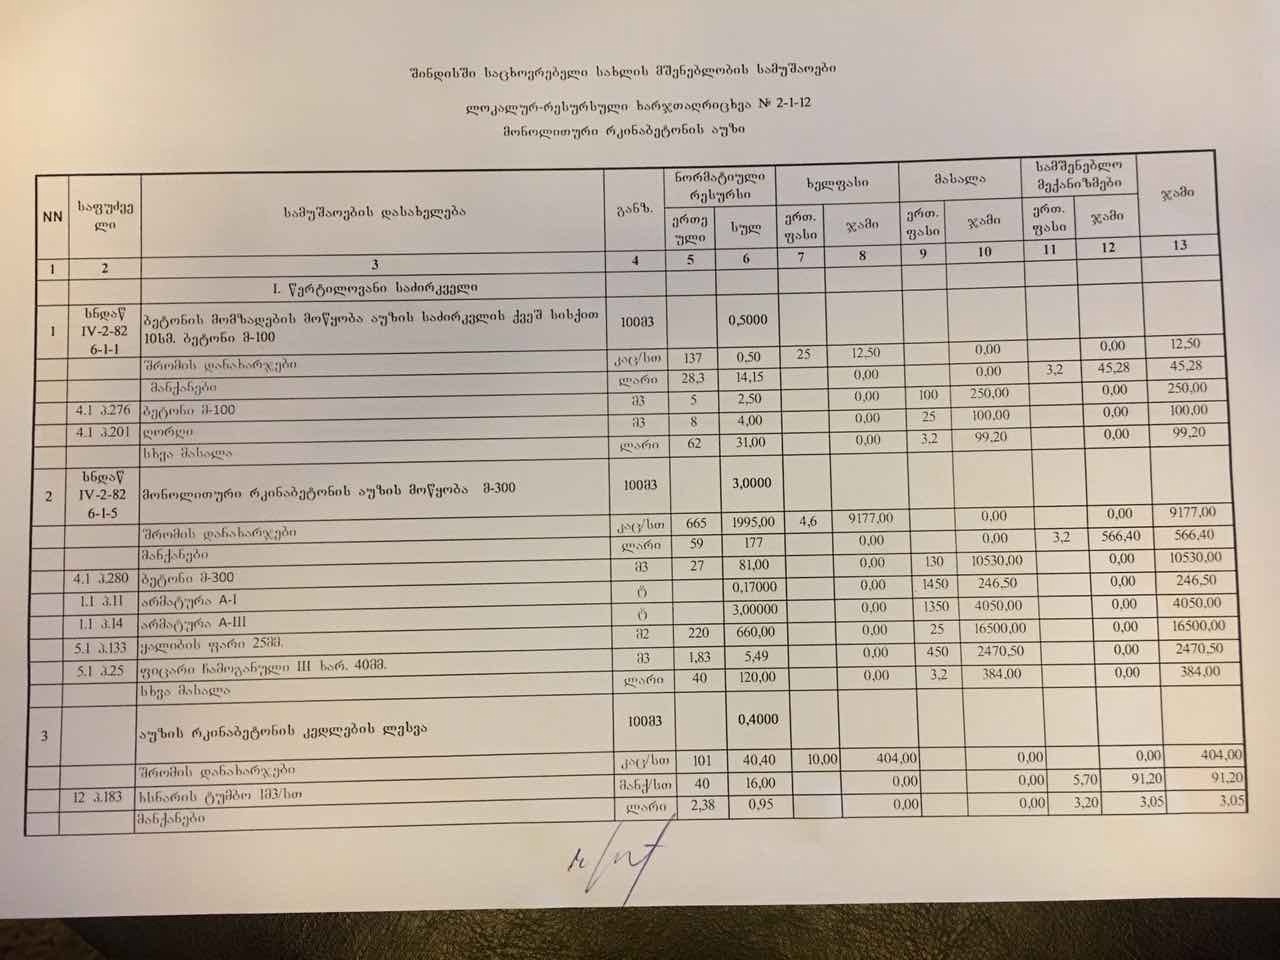 შინდისში საცხოვრებელი სახლის მშენებლობის სამუშაოები
ლოკალურ-რესურსული ხარჯთაღრიცხვა № 2-1-12
მონოლითური რკინაბეტონის აუზი
NN საფუძველი სამუშაოების დასახელება განზ. ნორმატიული რესურსი ხელფასი მასალა სამშენებლო მექანიზმები ჯამი
ერთეული სულ ერთ. ფასი ჯამი ერთ. ფასი ჯამი ერთ. ფასი ჯამი
1 2 3 4 5 6 7 8 9 10 11 12 13
I. წერტილოვანი საძირკველი
1 სნდაწ IV-2-82 6-1-1 ბეტონის მომზადების მოწყობა აუზის საძირკველის ქვეშ სისქით 10სმ. ბეტონი მ-100 100მ3 0,5000
შრომის დანახარჯები კაც/სთ 137 0,50 25 12,50 0,00 0,00 12,50
მანქანები ლარი 28,3 14,15 0,00 0,00 3,2 45,28 45,28
4.1 პ.276 ბეტონი მ-100 მ3 5 2,50 0,00 100 250,00 0,00 250,00
4.1 პ.201 ღორღი მ3 8 4,00 0,00 25 100,00 0,00 100,00
სხვა მასალა ლარი 62 31,00 0,00 3,2 99,20 0,00 99,20
2 სნდაწ IV-2-82 6-1-5 მონოლითური რკინაბეტონის აუზის მოწყობა მ-300 100მ3 3,0000
შრომის დანახარჯები კაც/სთ 665 1995,00 4,6 9177,00 0,00 0,00 9177,00
მანქანები ლარი 59 177 0,00 0,00 3,2 566,40 566,40
4.1 პ.280 ბეტონი მ-300 მ3 27 81,00 0,00 130 10530,00 0,00 10530,00
1.1 პ.11 არმატურა A-I ტ 0,17000 0,00 1450 246,50 0,00 246,50
1.1 პ.14 არმატურა A-III ტ 3,00000 0,00 1350 4050,00 0,00 4050,00
5.1 პ.133 ყალიბის ფარი 25მმ. მ2 220 660,00 0,00 25 16500,00 0,00 16500,00
5.1 პ.25 ფიცარი ჩამოგანული III ხარ. 40მმ. მ3 1,83 5,49 0,00 450 2470,50 0,00 2470,50
სხვა მასალა ლარი 40 120,00 0,00 3,2 384,00 0,00 384,00
3 აუზის რკინაბეტონის კედლების ლესვა 100მ3 0,4000
შრომის დანახარჯები კაც/სთ 101 40,40 10,00 404,00 0,00 0,00 404,00
12 პ.183 ხსნარის ტუმბო 1მ3/სთ მანქ/სთ 40 16,00 0,00 0,00 5,70 91,20 91,20
მანქანები ლარი 2,38 0,95 0,00 0,00 3,20 3,05 3,05